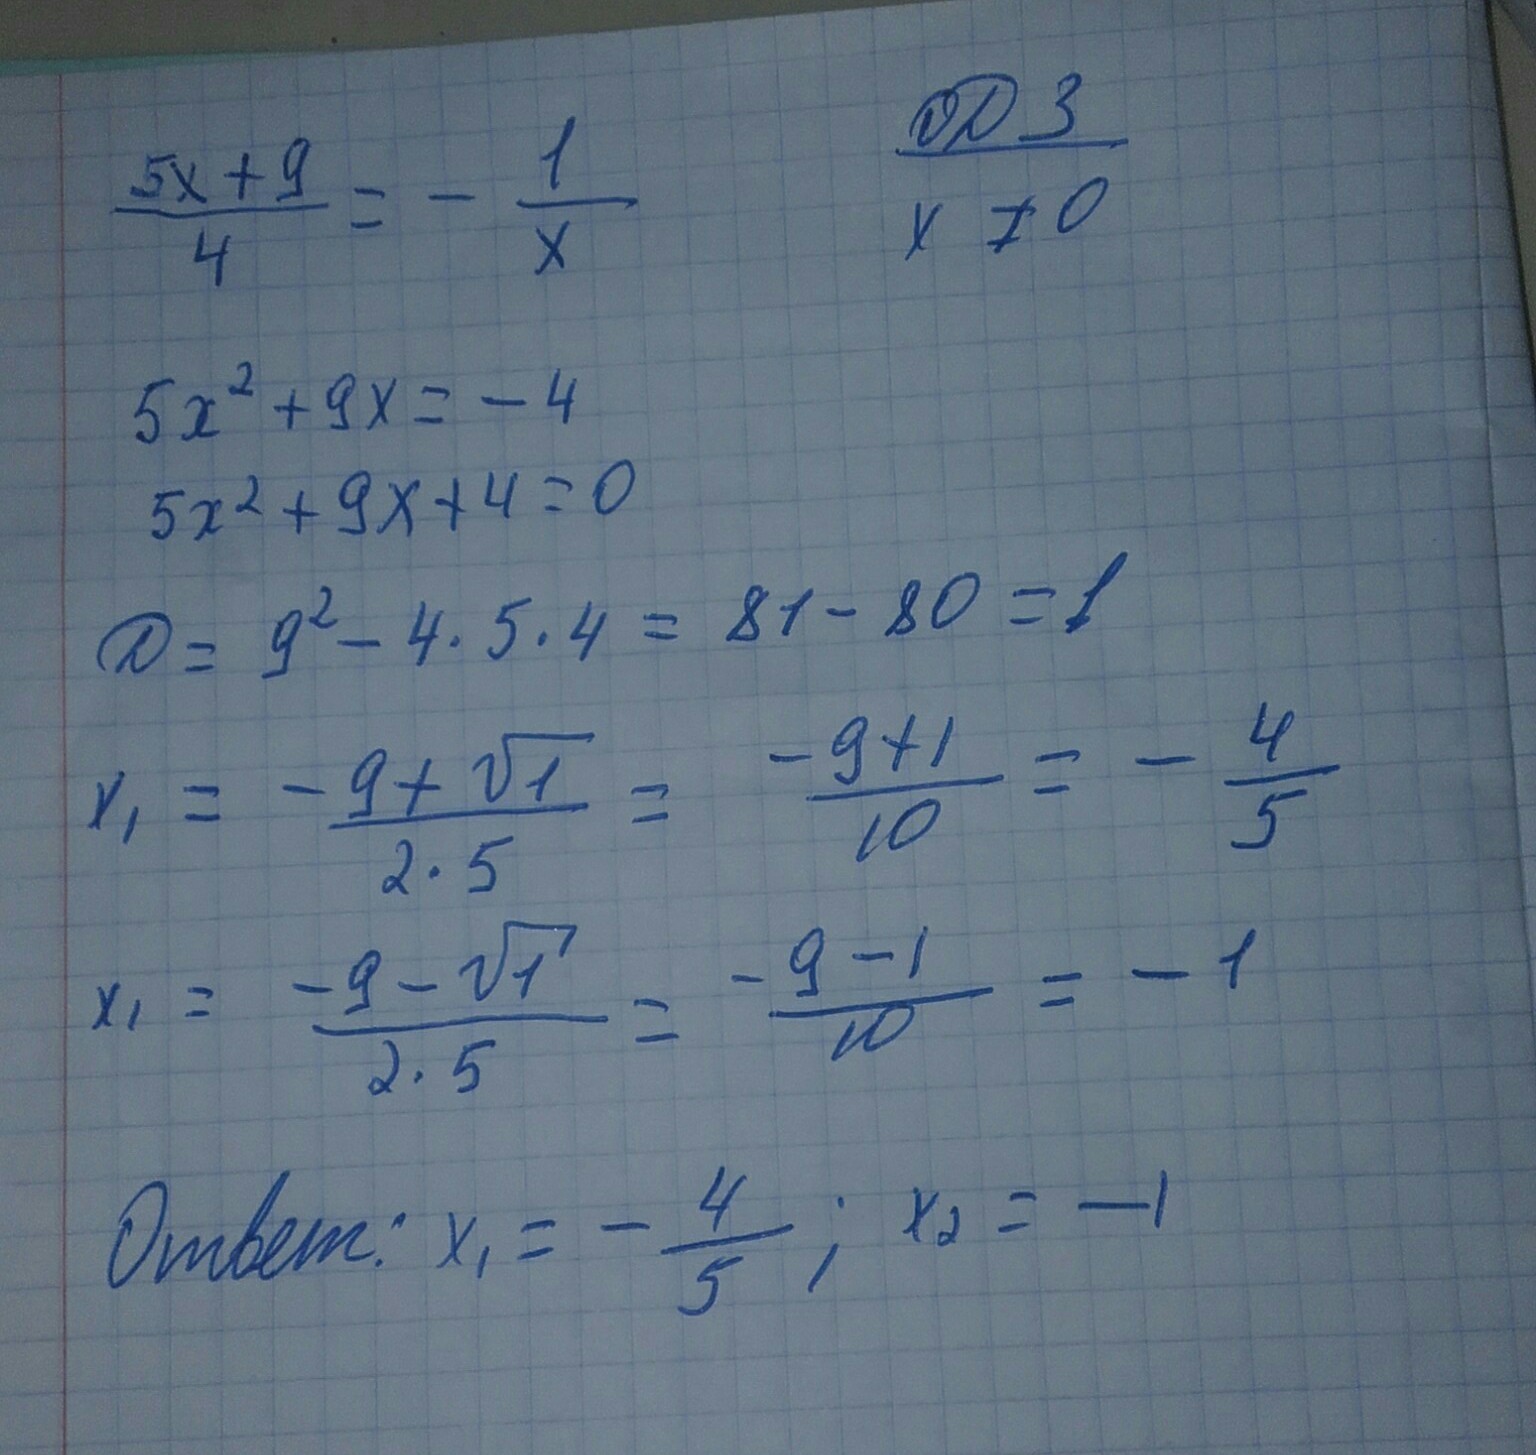 (5x+9)/4 = - 1/x   ОДЗ
x ≠ 0
5x² + 9x = -4
5x² + 9x + 4 = 0
D = 9² - 4·5·4 = 81 - 80 = 1
x₁ = (-9+√1)/(2·5) = (-9+1)/10 = - 4/5
x₁ = (-9-√1)/(2·5) = (-9-1)/10 = -1
Ответ: x₁ = - 4/5 ; x₂ = -1